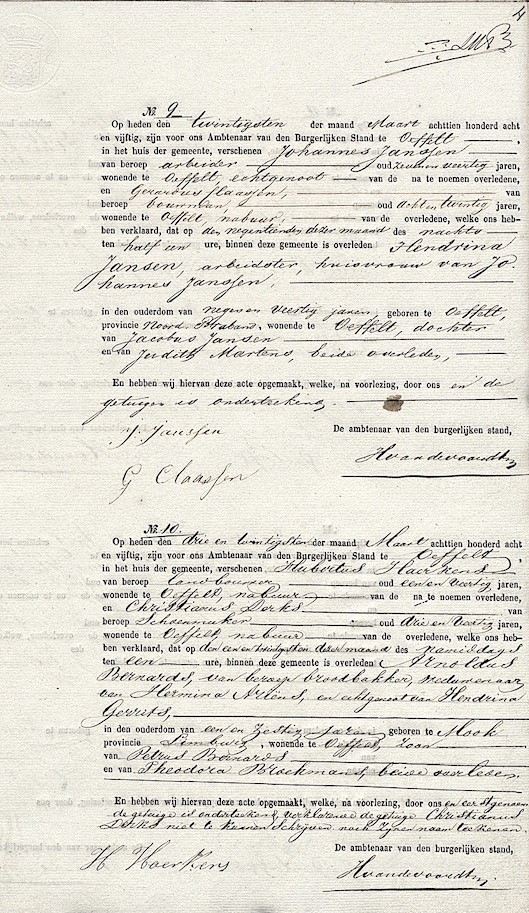 4
No. 9
Op heden den twintigsten der maand Maart achttien honderd acht
en vijftig, zijn voor ons Ambtenaar van den Burgerlijken Stand te Oeffelt,
in het huis der gemeente, verschenen Johannes Janssen
van beroep arbeider oud zeven en veertig jaren,
wonende te Oeffelt, echtgenoot van de na te noemen overledene,
en Gerardus Claassen, van
beroep bouwman, oud acht en twintig jaren,
wonende te Oeffelt, nabuur, van de overledene, welke ons heb-
ben verklaard, dat op den negentienden dezer maand des nachts
ten half een ure, binnen deze gemeente is overleden Hendrina
Jansen, arbeidster, huisvrouw van Jo-
hannes Janssen,
in den ouderdom van negen en veertig jaren, geboren te Oeffelt,
provincie Noord-Braband, wonende te Oeffelt, dochter
van Jacobus Jansen
en van Judith Martens, beide overleden,
En hebben wij hiervan deze acte opgemaakt, welke, na voorlezing, door ons en de
getuigen is onderteekend.
J. Janssen
De ambtenaar van den burgerlijken stand,
G Claassen
Hvandevoordt
No. 10.
Op heden den drie en twintigsten der maand Maart achttien honderd acht
en vijftig, zijn voor ons Ambtenaar van den Burgerlijken Stand te Oeffelt,
in het huis der gemeente, verschenen Hubertus Haerkens
van beroep landbouwer oud een en veertig jaren,
wonende te Oeffelt, nabuur van de na te noemen overledene,
en Christianus Derks van
beroep Schoenmaker oud drie en veertig jaren,
wonende te Oeffelt, nabuur van de overledene, welke ons heb-
ben verklaard, dat op den een en twintigsten dezer maand des namiddags
ten een ure, binnen deze gemeente is overleden Arnoldus
Bernards, van beroep broodbakker, weduwenaar
van Hermina Ariëns, en echtgenoot van Hendrina
Gerrits,
in den ouderdom van een en Zestig jaren geboren te Mook
provincie Limburg, wonende te Oeffelt, zoon
van Petrus Bernards
en van Theodora Broekmans, beide overleden.
En hebben wij hiervan deze acte opgemaakt, welke, na voorlezing, door ons en eerstgenoem
de getuige is onderteekend, verklarende de getuige Christianus
Derks niet te kunnen schrijven noch zijnen naam teekenen.
De ambtenaar van den burgerlijken stand,
H Haerkens
Hvandevoordt